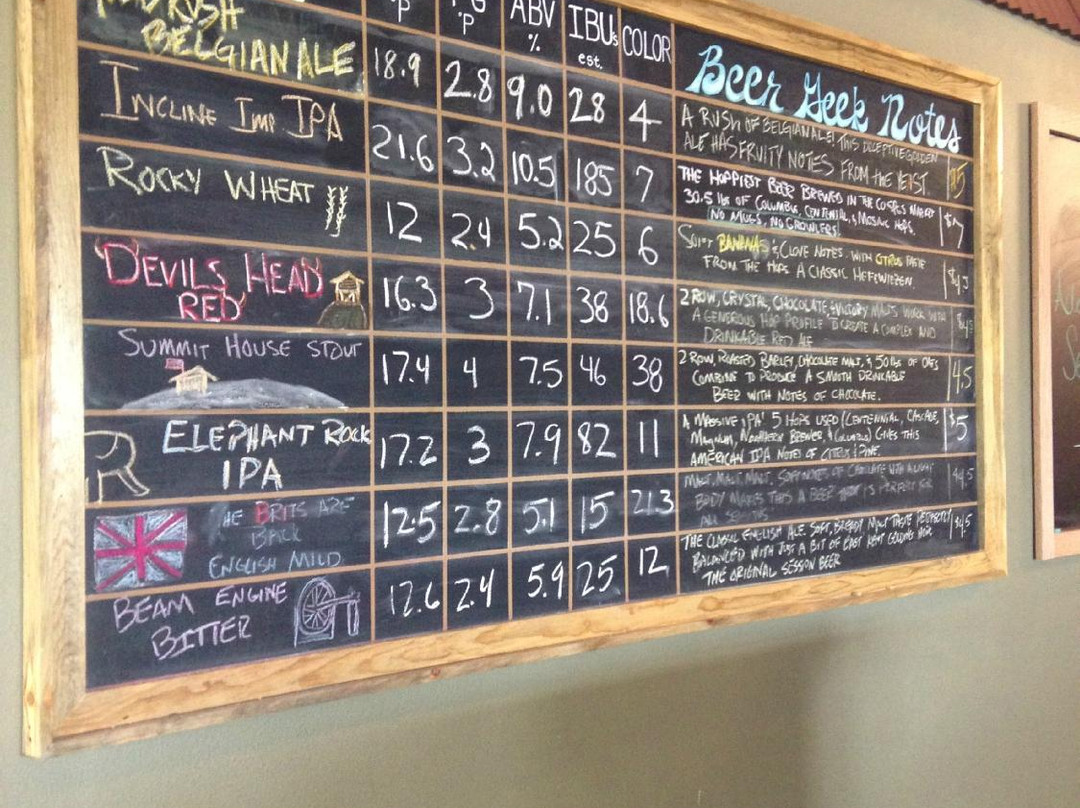 °P °P ABV % IBUs est. COLOR
Beer Geek Notes
RUSH
BELGIAN ALE 18.9 2.8 9.0 28 4
A RUSH OF BELGIAN ALE! THIS DECEPTIVE GOLDEN
ALE HAS FRUITY NOTES FROM the YEIST.
INCLINE Imp IPA 21.6 3.2 10.5 185 7
THE HOPPIEST BEER BREWED IN THE MARKET $7
30.5 lbs OF COLUMBUS, CENTENNIAL, & MOSAIC HOPS.
NO MUGS, NO GROWLERS!
ROCKY WHEAT 12 2.4 5.2 25 6
BANANAS & CLOVE NOTES WITH CITRUS TASTE
FROM THE HOPS A CLASSIC HEFEWIEZEN
DEVILS HEAD
RED 16.3 3 7.1 38 18.6
2 ROW, CRYSTAL, CHOCOLATE, & VICTORY MALTS WORK WITH
A GENEROUS HOP PROFILE TO CREATE A COMPLEX AND
DRINKABLE RED ALE
SUMMIT HOUSE STOUT 17.4 4 7.5 46 38
2 ROW, ROASTED BARLEY, CHOCOLATE MALT, & 50 lbs OF OATS 4.5
COMBINE TO PRODUCE A SMOOTH DRINKABLE
BEER WITH NOTES OF CHOCOLATE.
ELEPHANT ROCK
IPA 17.2 3 7.9 82 11
A MASSIVE IPA! 5 HOPS USED (CENTENNIAL, CASCADE, $5
MAGNUM, NORTHERN BREWER, & COLUMBUS) GIVES THIS
AMERICAN IPA NOTES OF CITRUS & PINE.
HE BRITS ARE
BACK
ENGLISH MILD 12.5 2.8 5.1 15 21.3
MALT, MALT, MALT. SOFT NOTES OF CHOCLATE WITH A LIGHT
BODY MAKES THIS A BEER THAT IS PERFECT FOR
ALL
BEAM ENGINE
BITTER 12.6 2.4 5.9 25 12
THE CLASSIC ENGLISH ALE. SOFT, BREADY MALT TASTE PERFECTLY
BALANCED WITH JUST A BIT OF EAST KENT GOLDING
THE ORIGINAL SESSION BEER